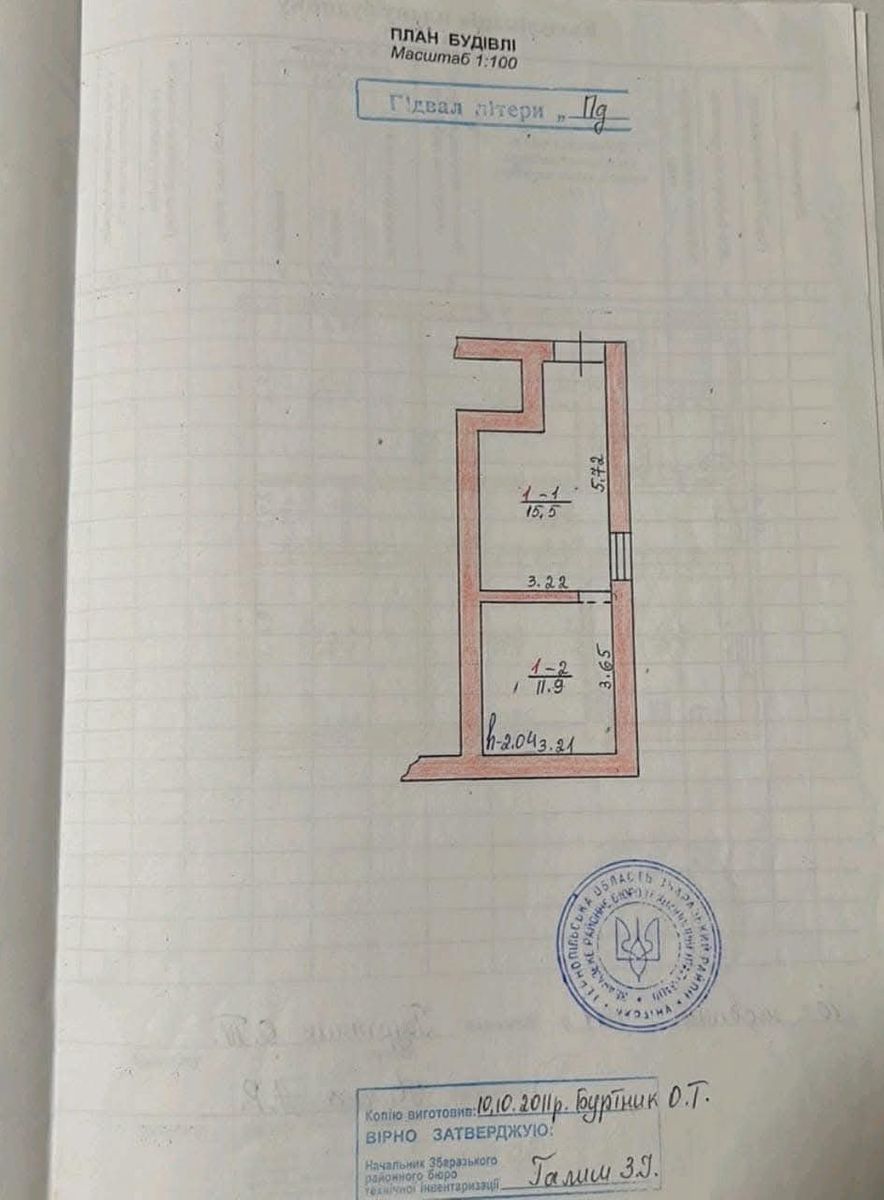 ПЛАН БУДІВЛІ
Масштаб 1:100
Підвал літери „ Пд
5.72
1-1
15,5
3.22
3.65
1-2
11.9
h-2.04
3.21
Копію виготовив: 10,10.2011р. Буртник О.Т.
ВІРНО ЗАТВЕРДЖУЮ:
Начальник Збаразького
районного бюро
технічної інвентаризації Галим З.І.
ТЕРНОПІЛЬСЬКА ОБЛАСТЬ ЗБАРАЗЬКИЙ РАЙОН
УКРАЇНА